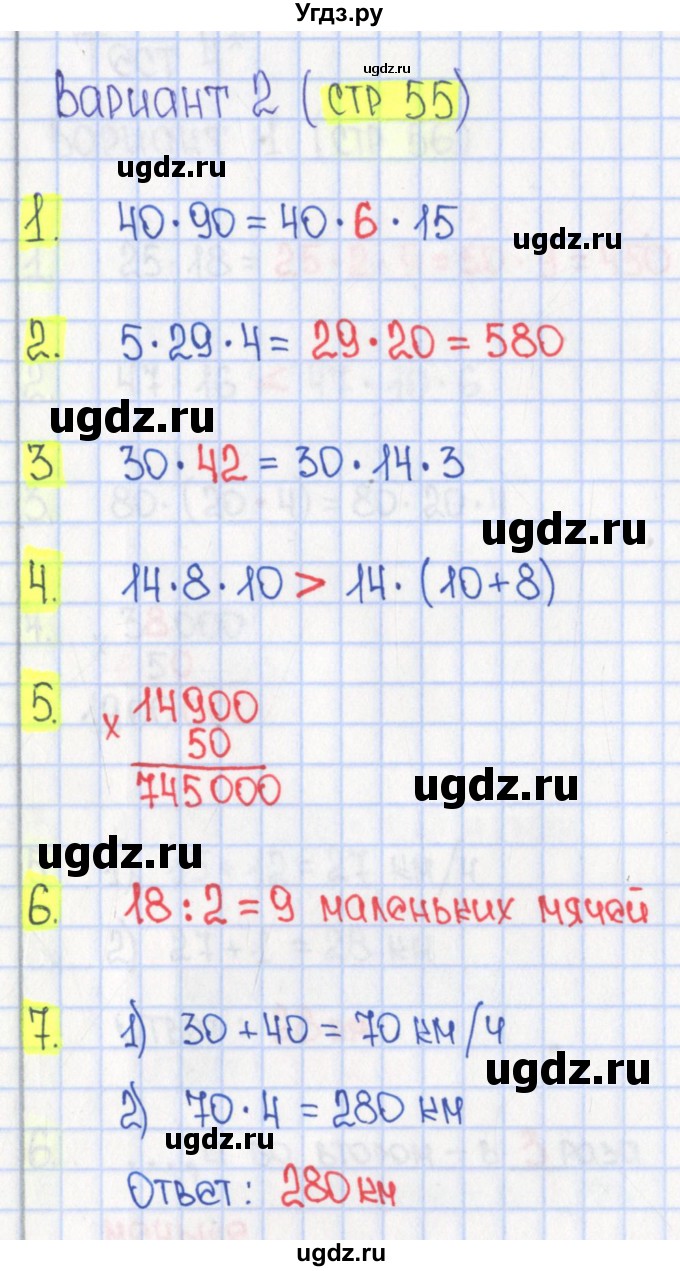 Угдз.ру
ugdz.ru
Вариант 2 (стр 55)
ugdz.ru
1. 40·90 = 40·6·15
ugdz.ru
2. 5·29·4 = 29·20 = 580
ugdz.ru
3 30·42 = 30·14·3
ugdz.ru
4. 14·8·10 > 14·(10+8)
5. x 14900
50
745000
ugdz.ru
ugdz.ru
6. 18:2=9 маленьких мячей
7. 1) 30+40=70 км/ч
ugdz.ru
2) 70·4=280 км
ugdz.ru
Ответ: 280 км
ugdz.ru